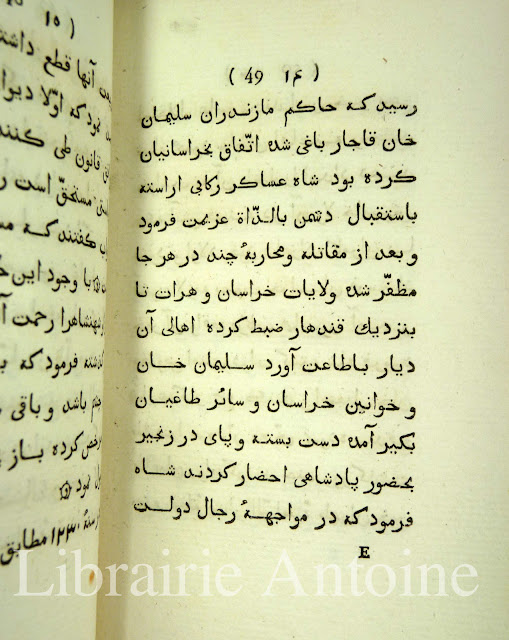 ( 49 ۱۴ )
رسید که حاکم مازندران سلیمان
خان قاجار باغی شده اتّفاق بخراسانیان
کرده بود شاه عساکر رکابی اراسته
باستقبال دشمن بالذّاة عزیمت فرمود
و بعد از مقاتله ومحاربهٔ چند در هر جا
مظفّر شده ولایات خراسان و هرات تا
بنزدیك قندهار ضبط کرده اهالی آن
دیار باطاعت آورد سلیمان خان
و خوانین خراسان و سائر طاغیان
بکیر آمده دست بسته و پای در زنجیر
بحضور پادشاهی احضار کردند شاه
فرمود که در مواجههٔ رجال دولت
E
( ۱۵
آنها قطع داشته
نمود که اوّلا دیوا
قانون طی کنند
مستحقّ است ر
کفتند که مس
با وجود این
شهنشاهرا رحمت آ
فرمود که ب
باشد و باقی
مرخص کرده باز
نمود
سنهٔ ۱۲۳۰ مطابق
Librairie Antoine